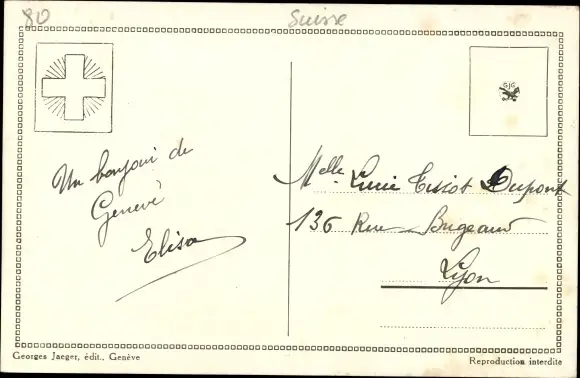 80
Suisse
GJG
Un bonjour de
Genève
Elisa
Melle Lucie Tissot Dupont
136 Rue Bugeaud
Lyon
Georges Jaeger, édit., Genève
Reproduction interdite